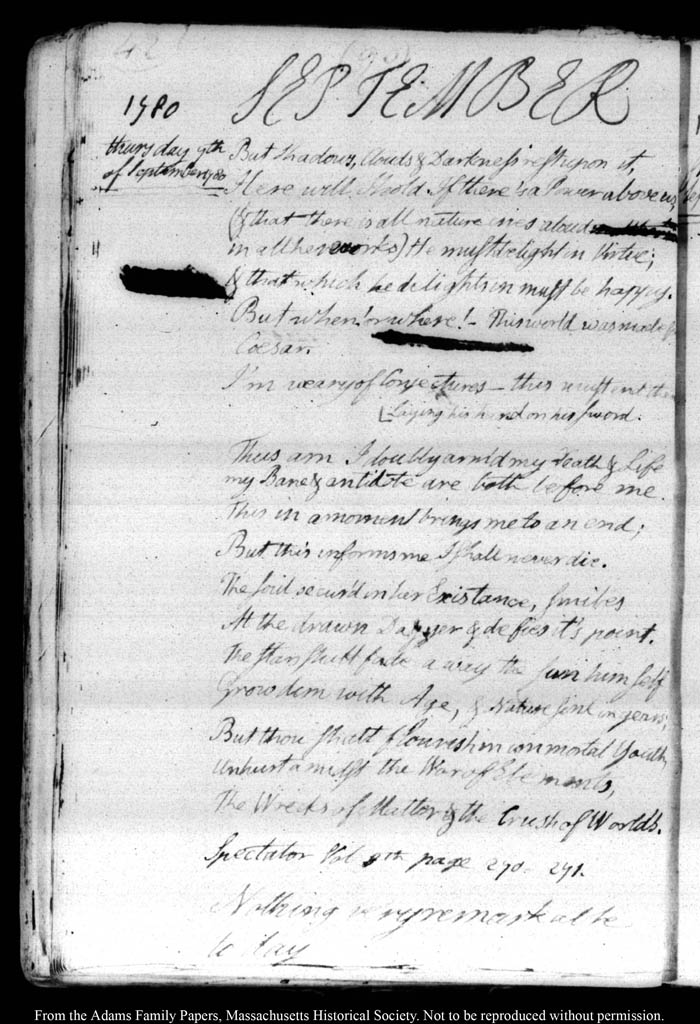 42
1780
SEPTEMBER
thursday 7th
of September 1780
But shadows, clouds & Darkness rest upon it,
Here will I hold. If there's a Power above us
(& that there is all nature cries aloud
in all her works) He must delight in Virtue;
& that which he delights in must be happy.
But when! or where! - This world was made
Coesar.
I'm weary of Conjectures - this must end
Laying his hand on his sword.
Thus am I doubly arm'd my Death & Life
my Bane & antidote are both before me.
This in a moment brings me to an end;
But this informs me I shall never die.
The soil secur'd in her Existance, smiles
At the drawn Dagger & defies it's point.
The stars shall fade away the sun himself
Grow dim with Age, & Nature sink in years;
But thou shalt flourish in immortal Youth
Unhurt amidst the War of Elements,
The Wrecks of Matter & the Crush of Worlds.
Spectator Vol 8th page 270. 271.
Nothing very remarkable
to day
From the Adams Family Papers, Massachusetts Historical Society. Not to be reproduced without permission.